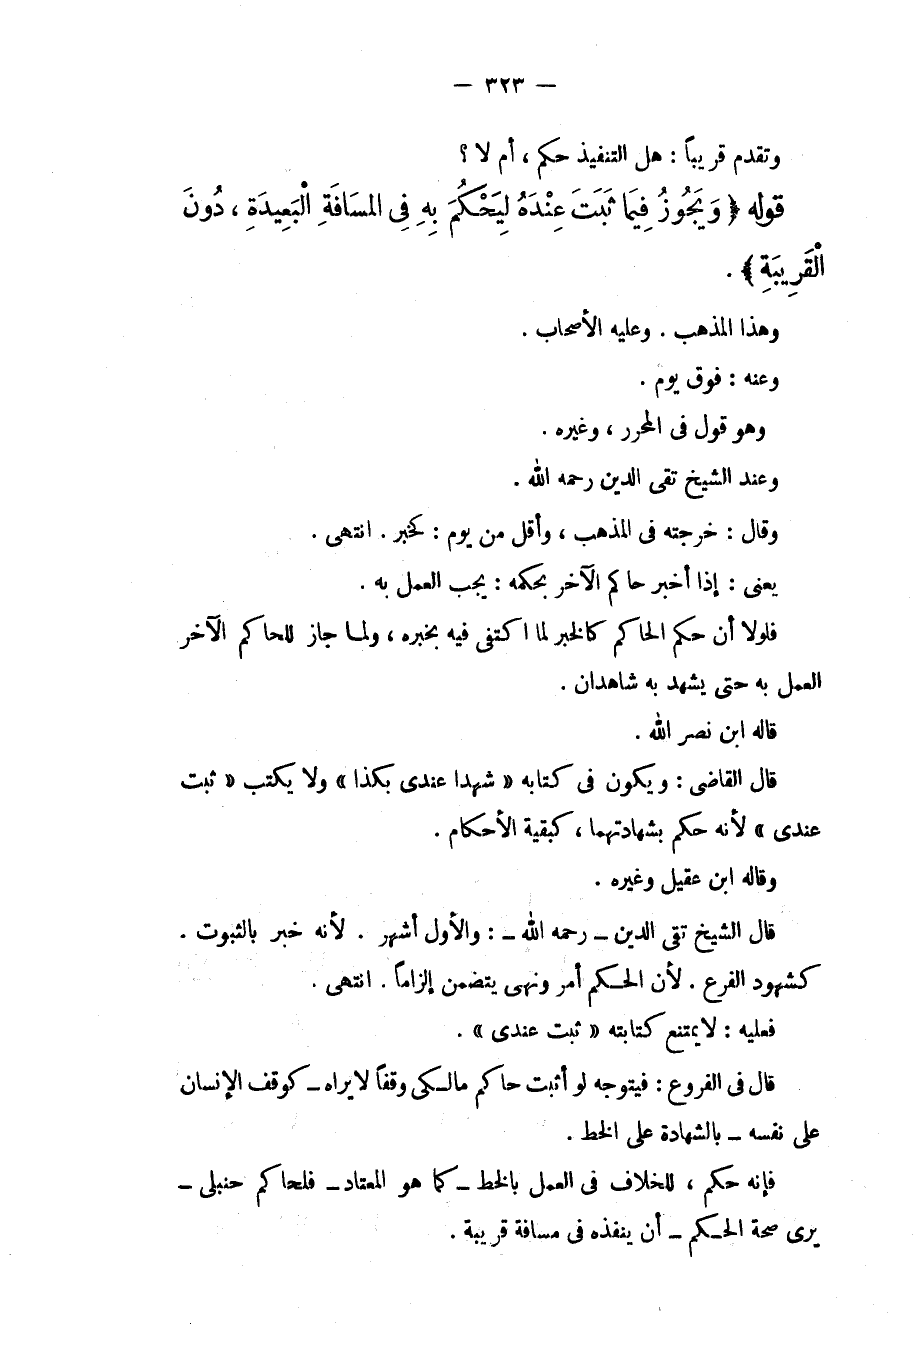 — ٣٢٣ —
وتقدم قريباً : هل التنفيذ حكم ، أم لا ؟
قوله ﴿ وَيَجُوزُ فِيَما ثَبَتَ عِنْدَهُ لِيَحْكُمَ بِهِ فِى المسَافَةِ الْبَعِيدَةِ ، دُونَ
الْقَرِيبَةِ ﴾ .
وهذا المذهب . وعليه الأصحاب .
وعنه : فوق يوم .
وهو قول فى المحرر ، وغيره .
وعند الشيخ تقى الدين رحمه الله .
وقال : خرجته فى المذهب ، وأقل من يوم : كخبر . انتهى .
يعنى : إذا أخبر حاكم الآخر بحكمه : يجب العمل به .
فلولا أن حكم الحاكم كالخبر لما اكتفى فيه بخبره ، ولما جاز للحاكم الآخر
العمل به حتى يشهد به شاهدان .
قاله ابن نصر الله .
قال القاضى : ويكون فى كتابه « شهدا عندى بكذا » ولا يكتب « ثبت
عندى » لأنه حكم بشهادتهما ، كبقية الأحكام .
وقاله ابن عقيل وغيره .
قال الشيخ تقى الدين ــ رحمه الله ــ : والأول أشهر . لأنه خبر بالثبوت .
كشهود الفرع . لأن الحكم أمر ونهى يتضمن إلزاماً . انتهى .
فعليه : لايمتنع كتابته « ثبت عندى » .
قال فى الفروع : فيتوجه لو أثبت حاكم مالكى وقفاً لايراه ــ كوقف الإنسان
على نفسه ــ بالشهادة على الخط .
فإنه حكم ، للخلاف فى العمل بالخط ــ كما هو المعتاد ــ فلحاكم حنبلى ــ
يرى صحة الحكم ــ أن ينفذه فى مسافة قريبة .